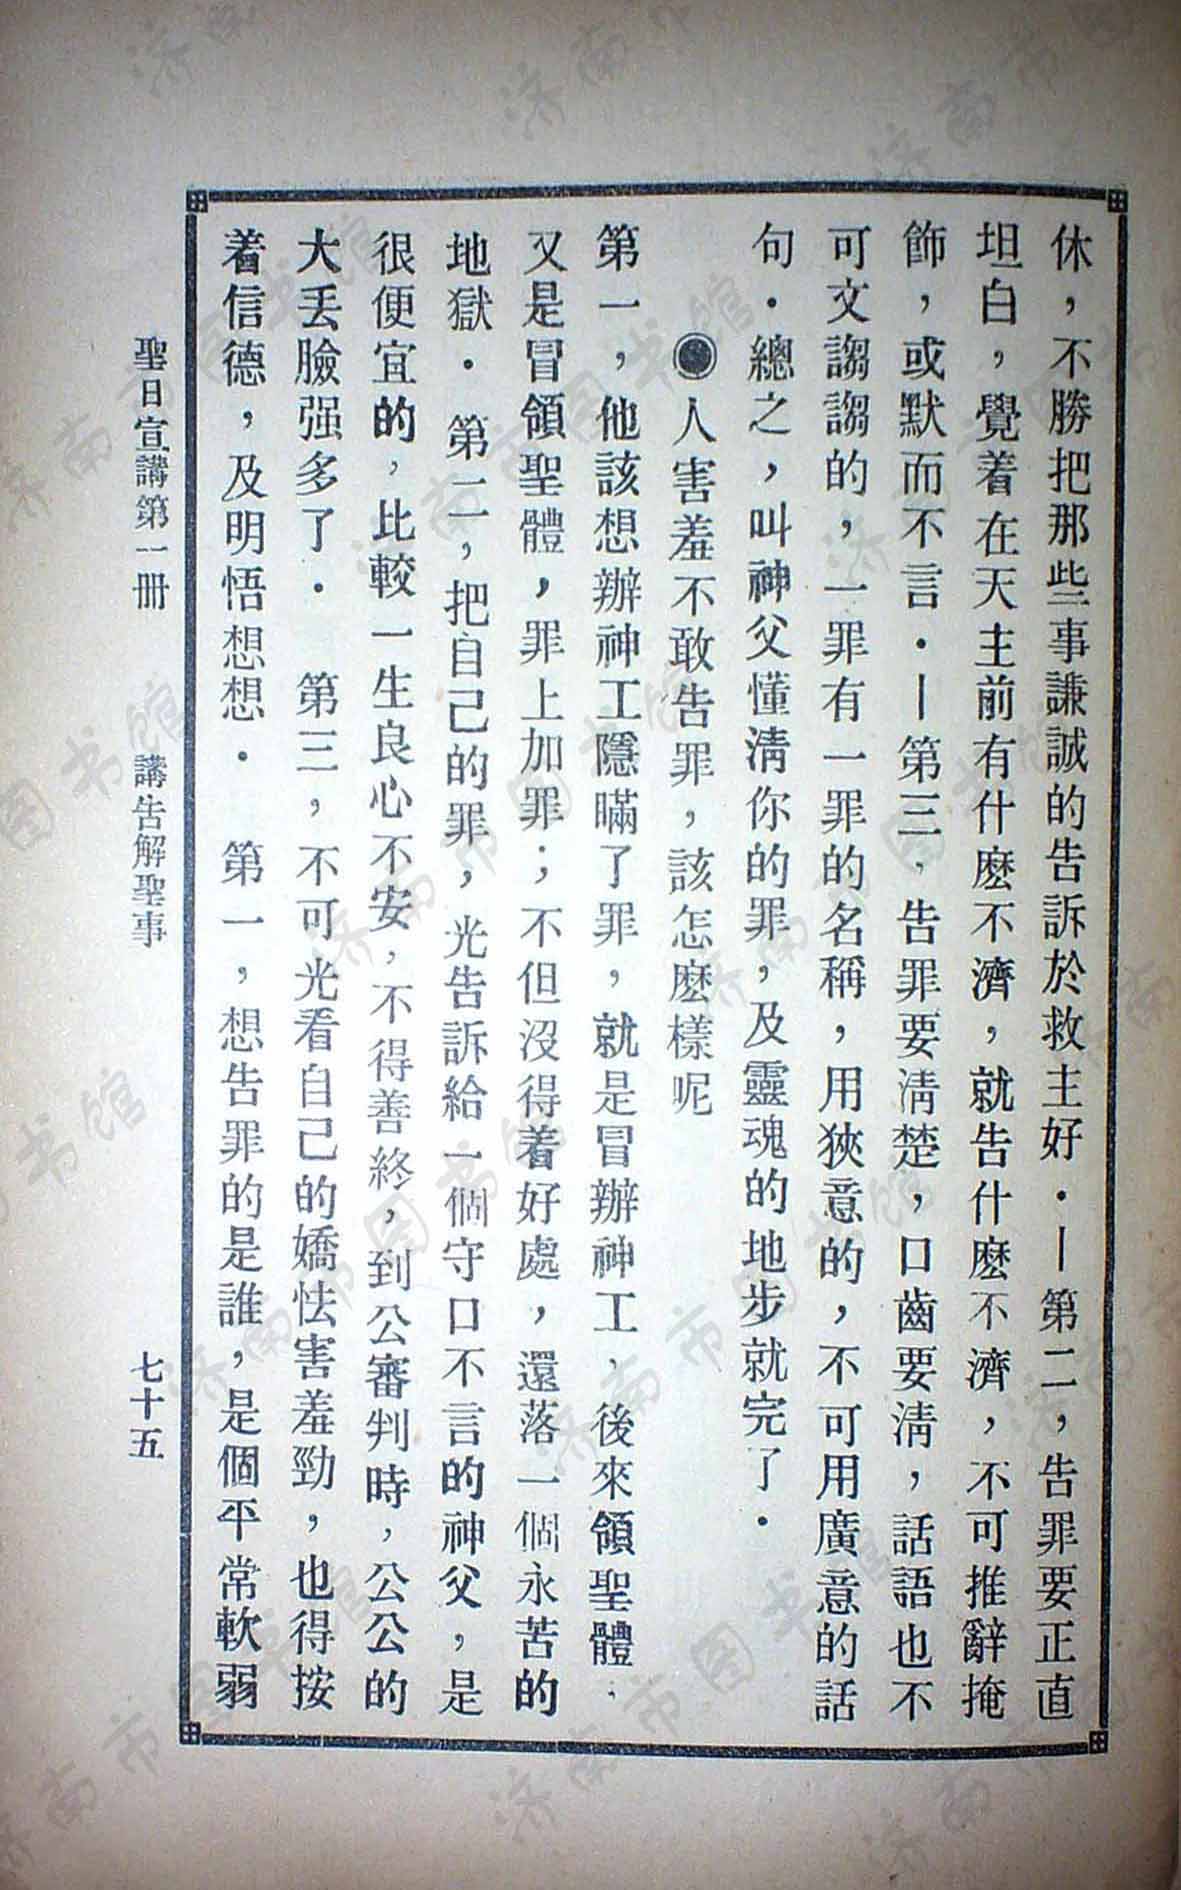 休，不勝把那些事謙誠的告訴於救主好．—第二，告罪要正直
坦白，覺着在天主前有什麽不濟，就告什麽不濟，不可推辭掩
飾，或默而不言．—第三，告罪要淸楚，口齒要淸，話語也不
可文謅謅的，一罪有一罪的名稱，用狹意的，不可用廣意的話
句．總之，叫神父懂淸你的罪，及靈魂的地步就完了．
◉人害羞不敢告罪，該怎麽樣呢
第一，他該想辦神工隱瞞了罪，就是冒辦神工，後來領聖體，
又是冒領聖體，罪上加罪；不但沒得着好處，還落一個永苦的
地獄．第二，把自己的罪，光告訴給一個守口不言的神父，是
很便宜的，比較一生良心不安，不得善終，到公審判時，公公的
大丟臉强多了．第三，不可光看自己的嬌怯害羞勁，也得按
着信德，及明悟想想．第一，想告罪的是誰，是個平常軟弱
聖日宣講第一冊 講告解聖事 七十五
济南市图书馆